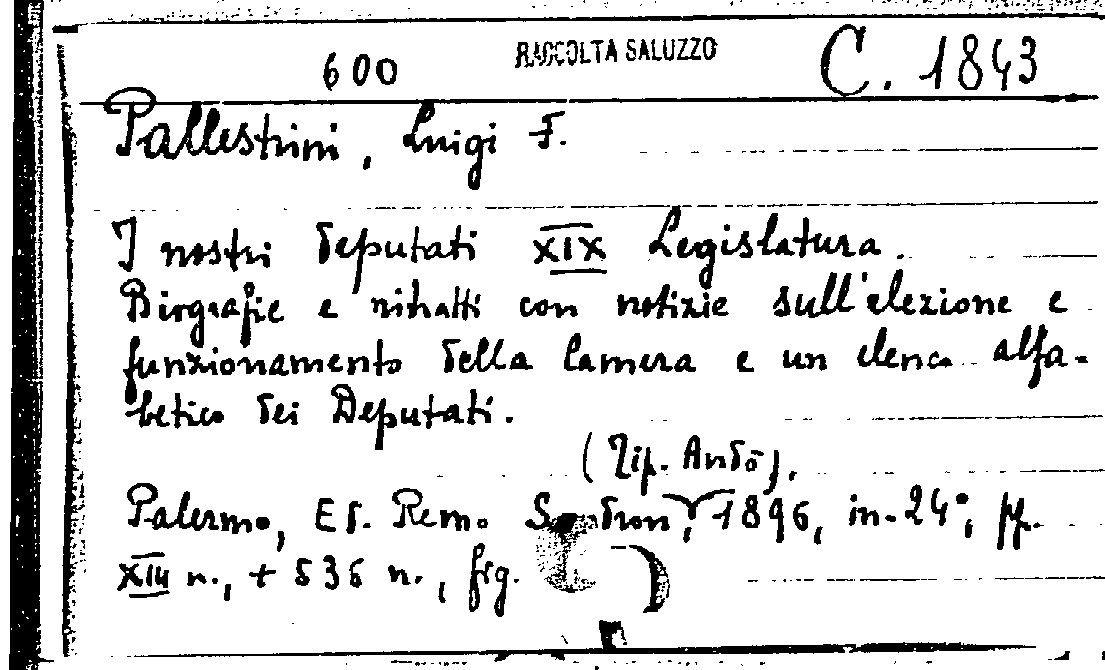 600 RACCOLTA SALUZZO C. 1843
Pallestrini, Luigi F.
I nostri deputati XIX Legislatura.
Biografie e ritratti con notizie sull'elezione e
funzionamento della Camera e un elenco alfa-
betico dei Deputati.
(Tip. Andò).
Palermo, Ed. Remo Sandron, 1896, in-24°, pp.
XIII n., + 536 n., fig.